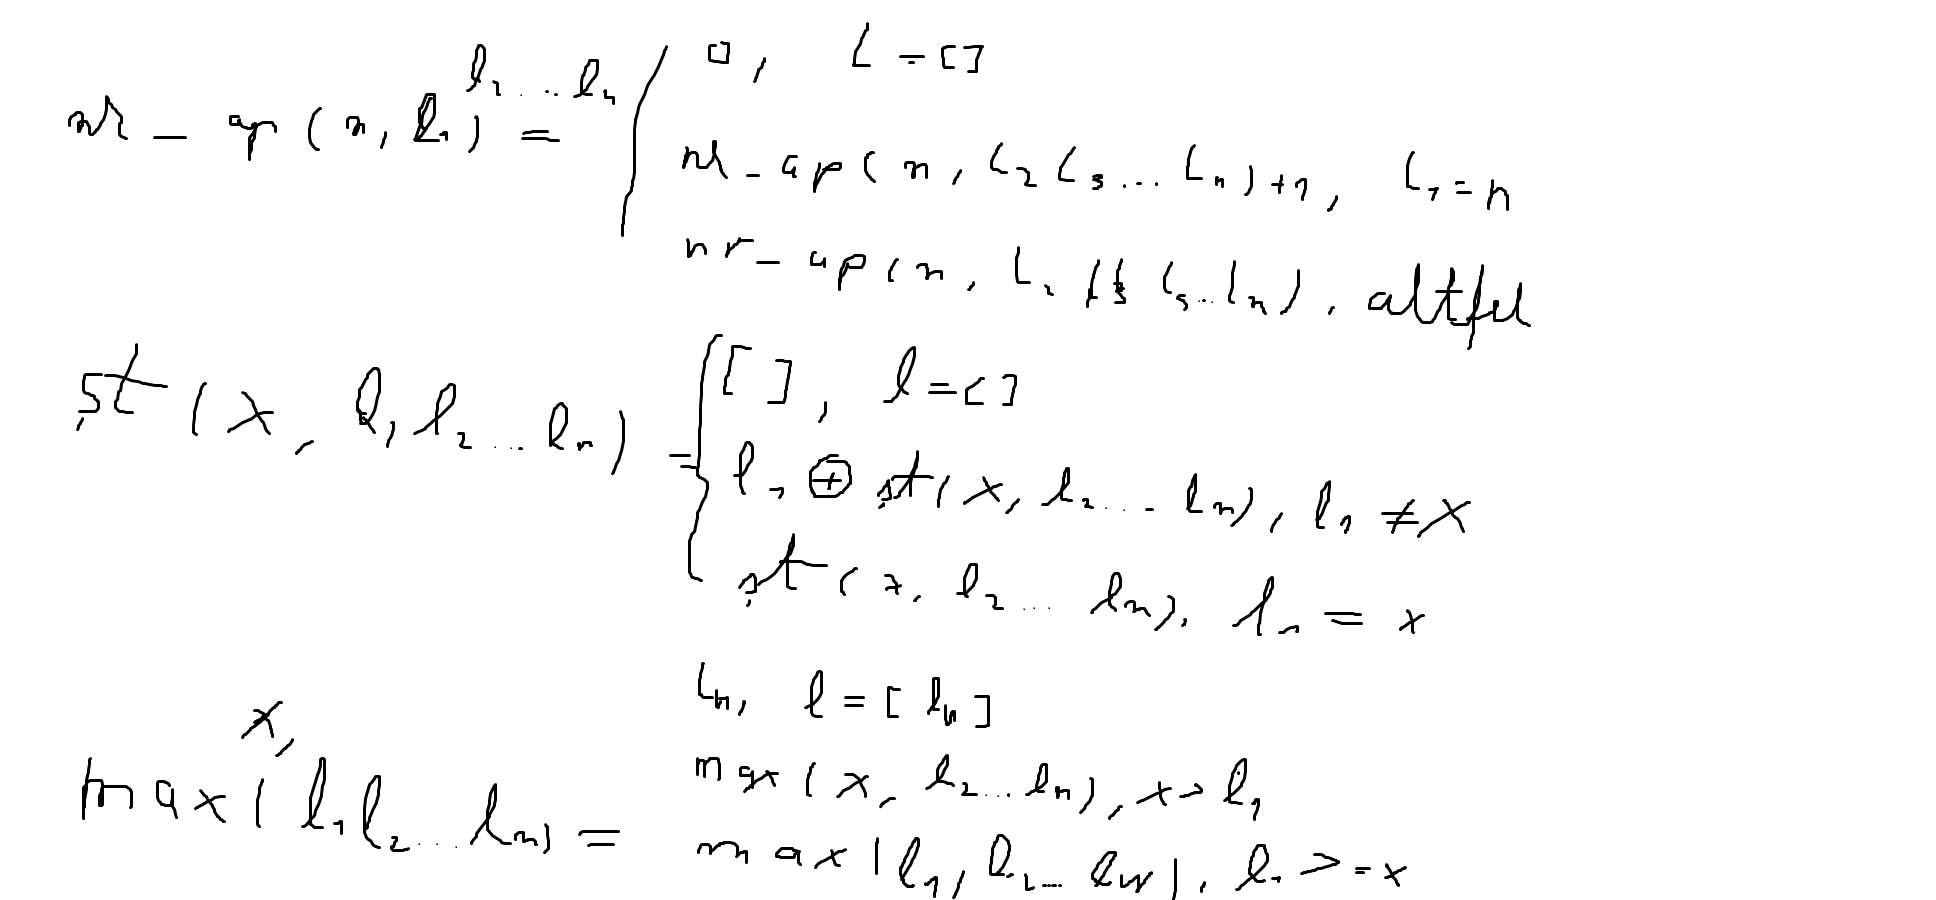 nr_ap(n, l₁l₂...lₙ) =
0, L = []
nr_ap(n, L₂L₃...Lₙ)+1, L₁=n
nr_ap(n, L₂ L₃...Lₙ), altfel
șt(x, l₁l₂...lₙ) =
[], l=[]
l₁ ⊕ șt(x, l₂...lₙ), l₁ ≠ x
șt(x, l₂...lₙ), l₁ = x
max(x, l₁l₂...lₙ) =
Lₙ, l=[lₙ]
max(x, l₂...lₙ), x > l₁
max(l₁, l₂...lₙ), l₁ >= x